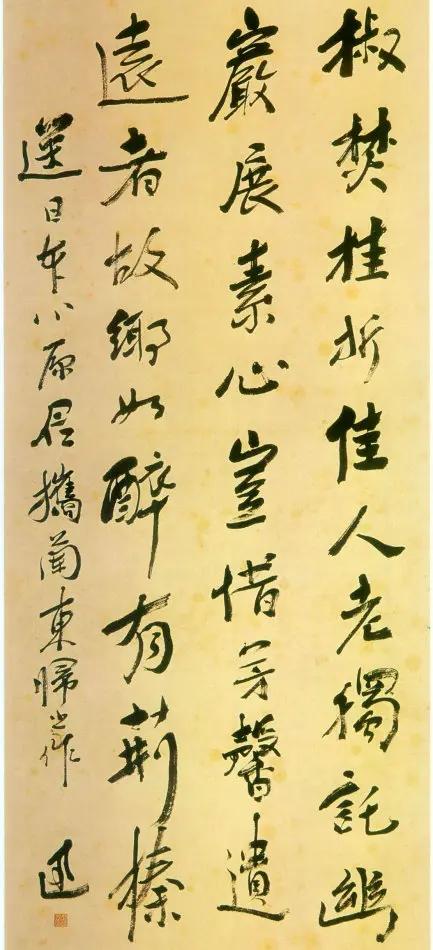 椒焚桂折佳人老獨託幽
巖展素心豈惜芳馨遺
遠者故鄉如醉有荊榛
送日本小原君攜蘭東歸之作 迅